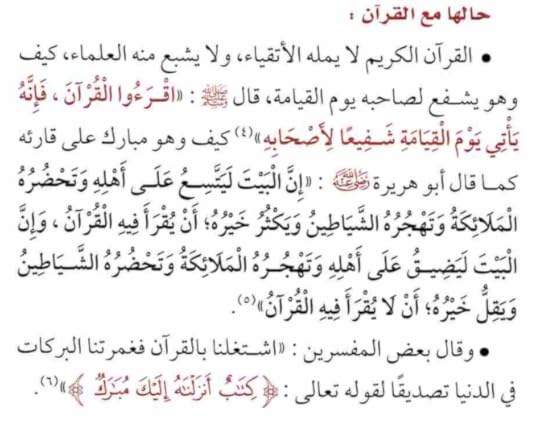 حالها مع القرآن :
• القرآن الكريم لا يمله الأتقياء، ولا يشبع منه العلماء، كيف
وهو يشفع لصاحبه يوم القيامة، قال ﷺ : «اقْرَءُوا الْقُرْآنَ ، فَإِنَّهُ
يَأْتِي يَوْمَ الْقِيَامَةِ شَفِيعًا لِأَصْحَابِهِ»(٤) كيف وهو مبارك على قارئه
كما قال أبو هريرة رَضِيَ اللَّهُ عَنْهُ : «إِنَّ الْبَيْتَ لَيَتَّسِعُ عَلَى أَهْلِهِ وَتَحْضُرُهُ
الْمَلَائِكَةُ وَتَهْجُرُهُ الشَّيَاطِينُ وَيَكْثُرُ خَيْرُهُ؛ أَنْ يُقْرَأَ فِيهِ الْقُرْآنُ ، وَإِنَّ
الْبَيْتَ لَيَضِيقُ عَلَى أَهْلِهِ وَتَهْجُرُهُ الْمَلَائِكَةُ وَتَحْضُرُهُ الشَّيَاطِينُ
وَيَقِلُّ خَيْرُهُ؛ أَنْ لَا يُقْرَأَ فِيهِ الْقُرْآنُ»(٥).
• وقال بعض المفسرين : «اشتغلنا بالقرآن فغمرتنا البركات
في الدنيا تصديقًا لقوله تعالى : ﴿ كِتَٰبٌ أَنزَلْنَٰهُ إِلَيْكَ مُبَٰرَكٌ ﴾»(٦).